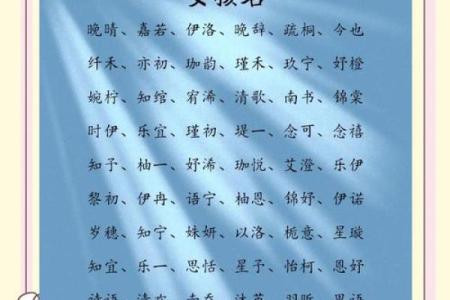 女孩名
晚晴、嘉若、伊洛、晚辞、疏桐、今也
纤禾、亦初、珈韵、瑾禾、玖宁、妤橙
婉柠、知绾、宥浠、清歌、南书、锦棠
时伊、乐宜、瑾初、堤一、念可、念禧
知予、柚一、妤浠、珈悦、艾澄、乐伊
黎初、伊冉、语宁、柚恩、锦妤、伊诺
岁穗、知宁、姝妍、以洛、栀意、星璇
知宜、乐一、思恬、星子、怡柯、恩妤